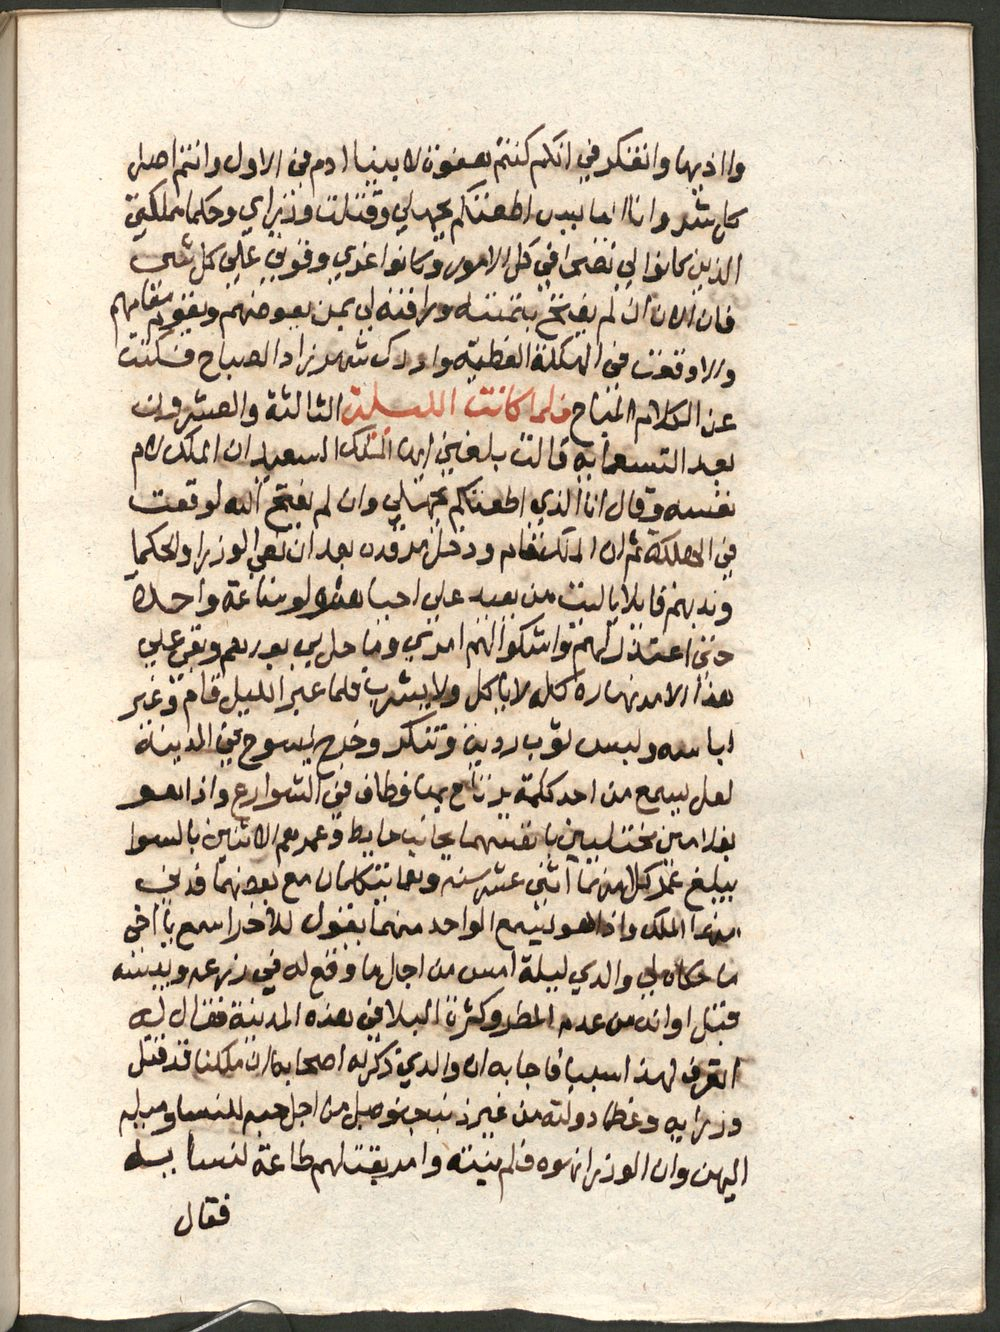 وااذيها وانفكر في انكم كنتم بعضون لابينا ادم في الاول وانتم اصل
كل شر وانا اما بيس اطعتكم بجهلي وقتلت وزراي وحكما مملكتي
الذين كانوا لي نصحا في كل الامور وكانوا عزي وقوتي علي كل شي
فان الان ان لم يفتح بنعمته ورافته لي بمن يعوضهم ويقوم مقامهم
والا وقعت في الهلكة العظيمه وادرك شهرزاد الصباح فسكتت
عن الكلام المباح فلما كانت الليلة الثالثة والعشرون
بعد التسعمايه قالت بلغني ايها الملك السعيد ان الملك لام
نفسه وقال انا الذي اطعتكم بجهلي وان لم يفتح الله لوقعت
في الهلكة ثم ان الملك قام ودخل مرقده بعد ان نعي الوزرا والحكما
وندبهم قايلا ياليت من يعيد علي احبا هولا لو ساعة واحدة
حتي اعتذر لهم واشكوا لهم امري وما حل بي بعدهم وبقي علي
هذا الامر نهاره كله لا ياكل ولا يشرب فلما عبر الليل قام وغير
لباسه ولبس ثوب ردين وتنكر وخرج ليسوح في المدينة
لعل يسمع من احد كلمة يرتاح بها وطاف في الشوارع واذا هو
بغلامين مختليين بانفسهما بجانب حايط وعمرهم الاثنين بالسوا
يبلغ عمر كل منهما اثني عشر سنه وهما يتكلمان مع بعضهما فدني
منهما الملك واذا هو ليسمع الواحد منهما يقول للاخر اسمع يااخي
ما حكاه لي والدي ليلة امس من اجل ما وقع له في زرعه ويبسه
قبل اوانه من عدم المطر وكثرة البلا في هذه المدينة فقال له
اتعرف لهذا سببا فاجابه ان والدي ذكر له اصحابه ان ملكنا قد قتل
وزرايه وعظما دولته من غير ذنب حصل من اجل حبه للنسا وميله
اليهن وان الوزرا نهوه فلم ينته وامر بقتلهم طاعة لنسايه
فقال